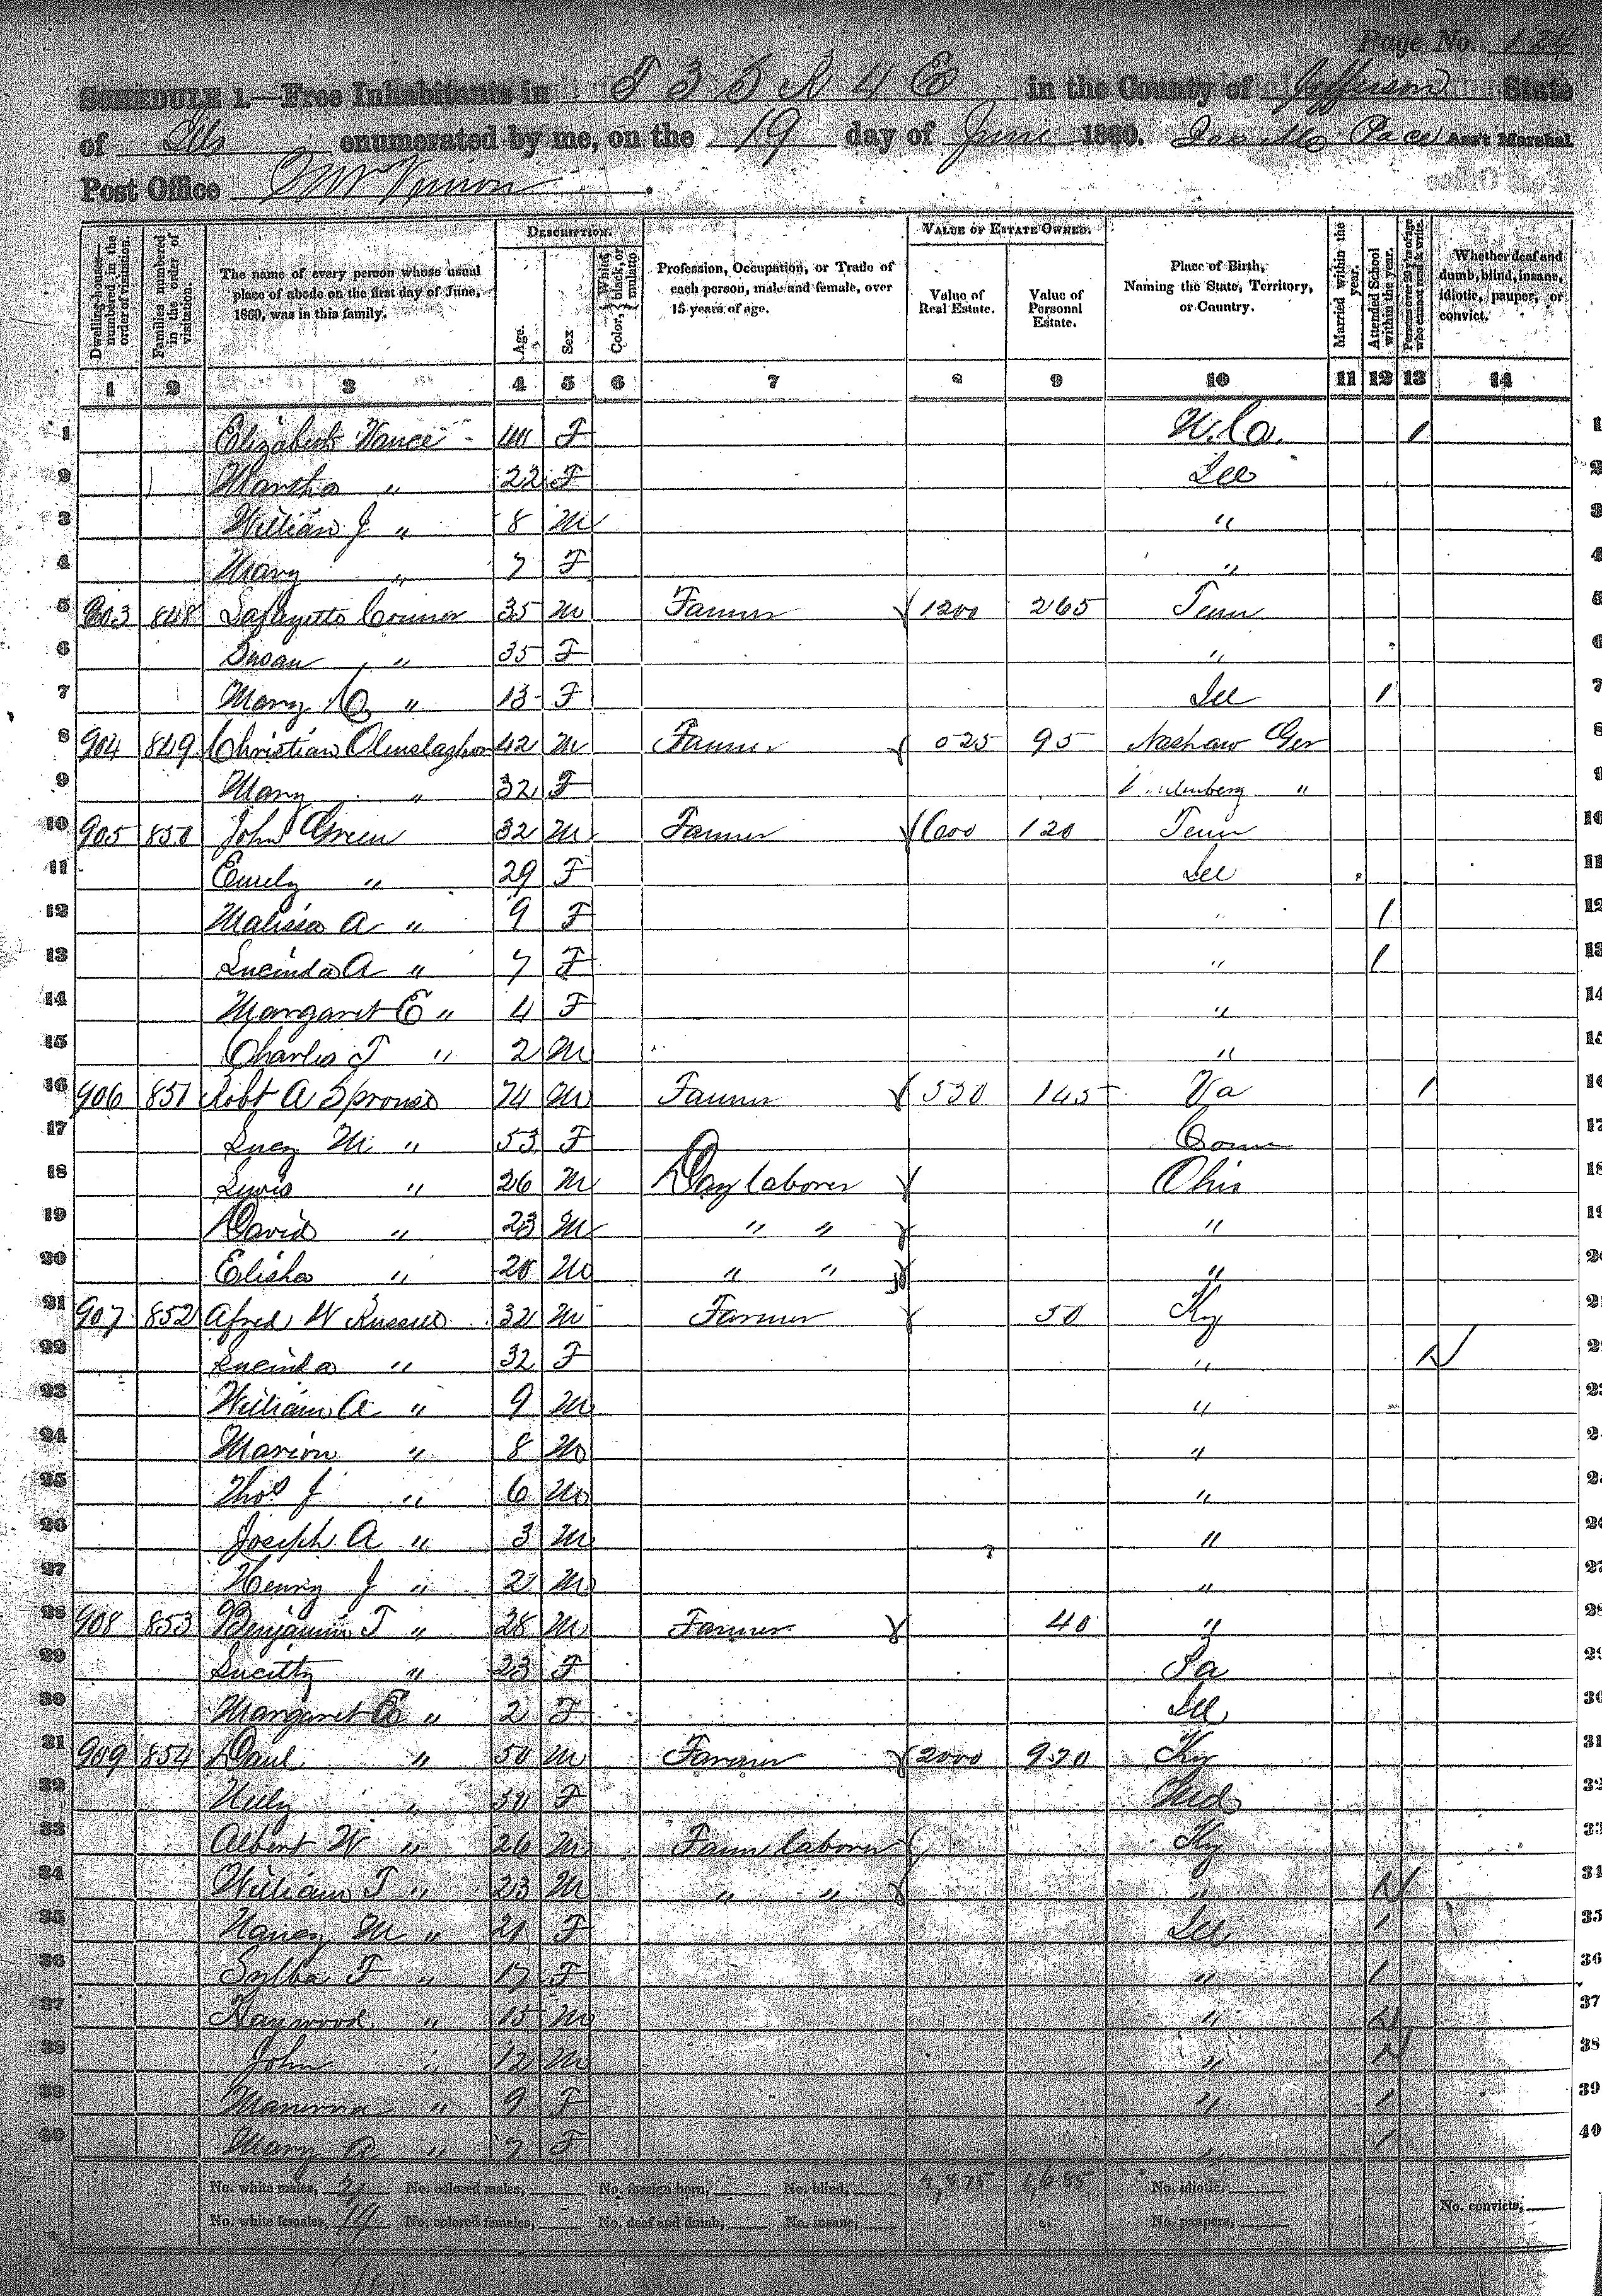 Page No. 124
SCHEDULE 1.—Free Inhabitants in T 3 S R 4 E in the County of Jefferson State
of Ills enumerated by me, on the 19 day of June 1860. Pace Ass't Marshal.
Post Office Mt Vernon
Dwelling-houses—numbered in the order of visitation.
Families numbered in the order of visitation.
The name of every person whose usual place of abode on the first day of June, 1860, was in this family.
DESCRIPTION.
Age.
Sex
Color, White, black, or mulatto
Profession, Occupation, or Trade of each person, male and female, over 15 years of age.
VALUE OF ESTATE OWNED.
Value of Real Estate.
Value of Personal Estate.
Place of Birth, Naming the State, Territory, or Country.
Married within the year.
Attended School within the year.
Persons over 20 y'rs of age who cannot read & write.
Whether deaf and dumb, blind, insane, idiotic, pauper, or convict.
1 2 3 4 5 6 7 8 9 10 11 12 13 14
1 Elizabeth Vance F N. Ca. / 1
2 Martha " 22 F Ill 2
3 William J " 8 M " 3
4 Mary " 7 F " 4
5 903 848 Lafayette Conner 35 M Farmer 1200 265 Tenn 5
6 Susan " 35 F " 6
7 Mary " 13 F Ill / 7
8 904 849 Christian 42 M Farmer 95 Ger 8
9 Mary " 32 F " 9
10 905 850 John Green 32 M Farmer 600 120 Tenn 10
11 Emely " 29 F Ill 11
12 Malissa A " 9 F " / 12
13 Lucinda A " 7 F " / 13
14 Margaret E " 4 F " 14
15 Charles T " 2 M " 15
16 906 851 Robt A Sprouse 74 M Farmer 550 145 Va / 16
17 Lucy M " 53 F Conn 17
18 Lewis " 26 M Day laborer Ohio 18
19 David " 23 M " " " 19
20 Elisha " 20 M " " " 20
21 907 852 Alfred W Russell 32 M Farmer 50 Ky 21
22 Lucinda " 32 F " / 22
23 William A " 9 M " 23
24 Marion " 8 M " 24
25 Thos J " 6 M " 25
26 Joseph A " 3 M " 26
27 Henry J " 2 M " 27
28 908 853 Benjamin T " 28 M Farmer 40 " 28
29 " 23 F Pa 29
30 Margaret E " 2 F Ill 30
31 909 854 Danl " 50 M Farmer 2000 970 Ky 31
32 " 50 F 32
33 Albert W " 26 M Farm laborer Ky 33
34 William T " 23 M " " " / 34
35 Nancy M " 21 F Ill / 35
36 F " 17 F " / 36
37 Haywood " 15 M " / 37
38 John " 12 M " / 38
39 " 9 F " / 39
40 Mary A " 7 F " / 40
No. white males, 21 No. colored males, No. foreign born, No. blind, 4,875 1,685 No. idiotic,
No. white females, 19 No. colored females, No. deaf and dumb, No. insane, No. paupers, No. convicts,